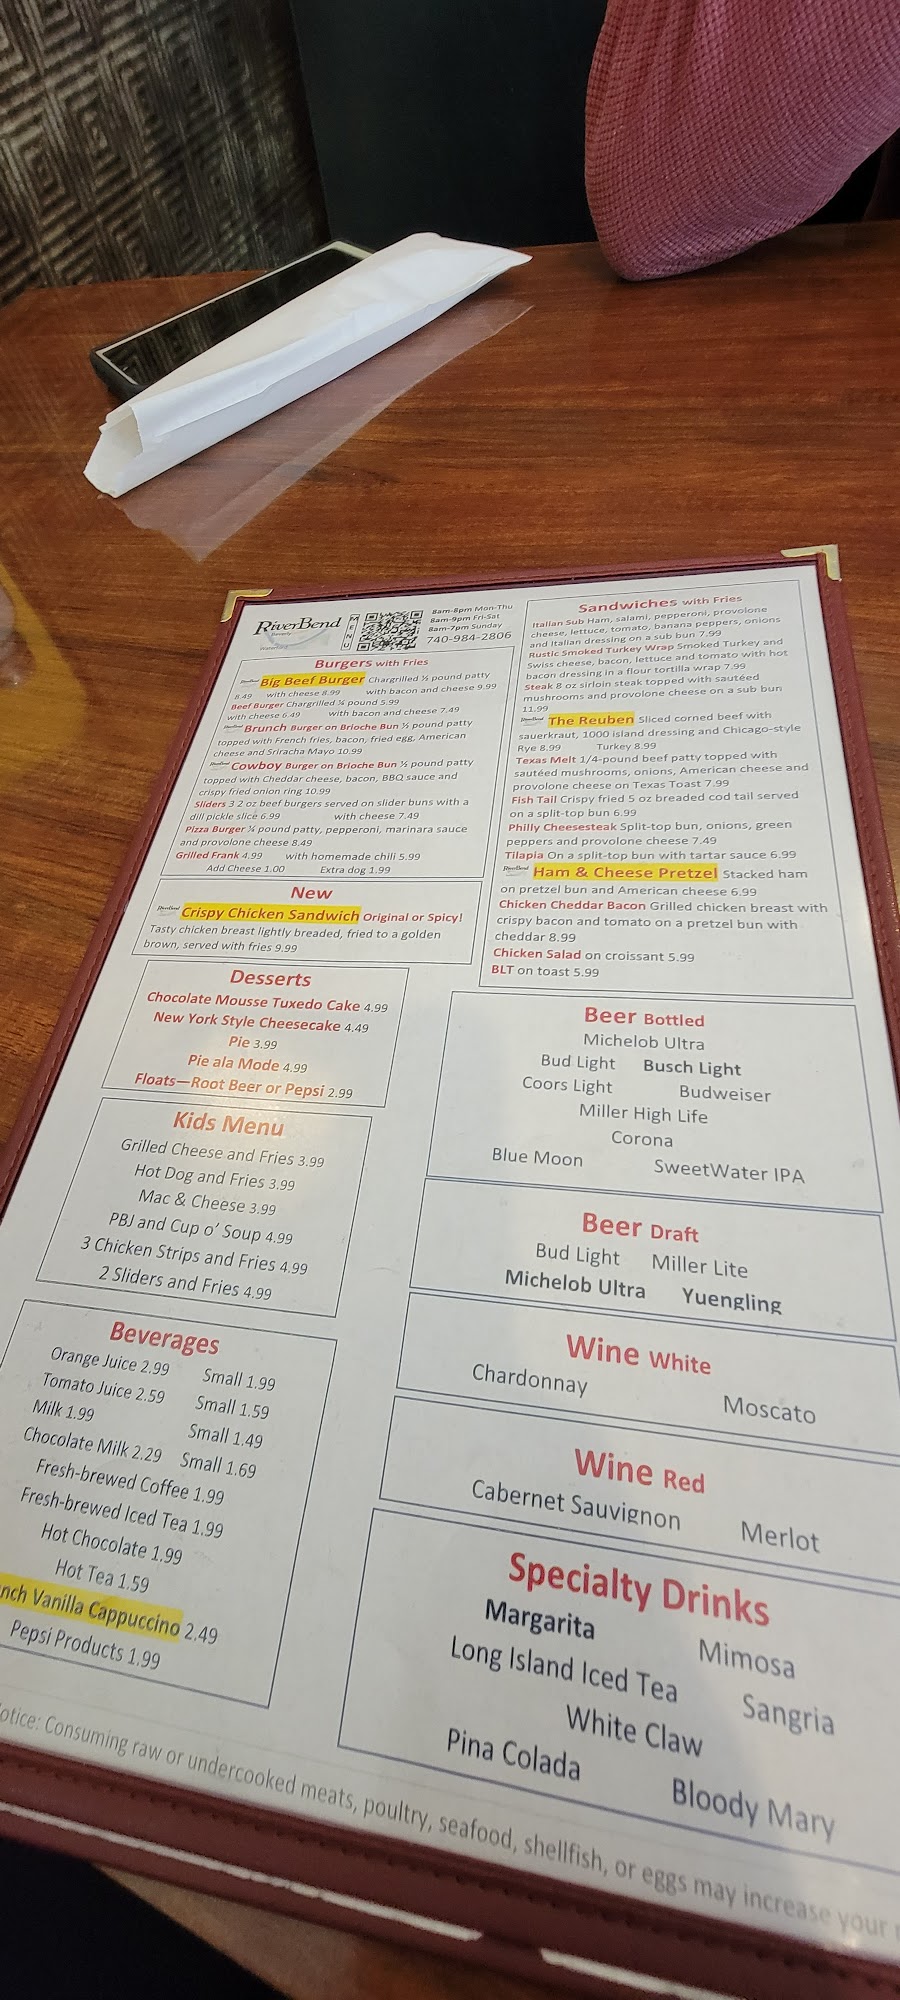 RiverBend
Beverly
Waterford
MENU
8am-8pm Mon-Thu
8am-9pm Fri-Sat
8am-7pm Sunday
740-984-2806
Burgers with Fries
Big Beef Burger Chargrilled ½ pound patty
8.49 with cheese 8.99 with bacon and cheese 9.99
Beef Burger Chargrilled ¼ pound 5.99
with cheese 6.49 with bacon and cheese 7.49
RiverBend Brunch Burger on Brioche Bun ½ pound patty
topped with French fries, bacon, fried egg, American
cheese and Sriracha Mayo 10.99
RiverBend Cowboy Burger on Brioche Bun ½ pound patty
topped with Cheddar cheese, bacon, BBQ sauce and
crispy fried onion ring 10.99
Sliders 3 2 oz beef burgers served on slider buns with a
dill pickle slice 6.99 with cheese 7.49
Pizza Burger ¼ pound patty, pepperoni, marinara sauce
and provolone cheese 8.49
Grilled Frank 4.99 with homemade chili 5.99
Add Cheese 1.00 Extra dog 1.99
New
RiverBend Crispy Chicken Sandwich Original or Spicy!
Tasty chicken breast lightly breaded, fried to a golden
brown, served with fries 9.99
Desserts
Chocolate Mousse Tuxedo Cake 4.99
New York Style Cheesecake 4.49
Pie 3.99
Pie ala Mode 4.99
Floats—Root Beer or Pepsi 2.99
Kids Menu
Grilled Cheese and Fries 3.99
Hot Dog and Fries 3.99
Mac & Cheese 3.99
PBJ and Cup o' Soup 4.99
3 Chicken Strips and Fries 4.99
2 Sliders and Fries 4.99
Beverages
Orange Juice 2.99 Small 1.99
Tomato Juice 2.59 Small 1.59
Milk 1.99 Small 1.49
Chocolate Milk 2.29 Small 1.69
Fresh-brewed Coffee 1.99
Fresh-brewed Iced Tea 1.99
Hot Chocolate 1.99
Hot Tea 1.59
nch Vanilla Cappuccino 2.49
Pepsi Products 1.99
Sandwiches with Fries
Italian Sub Ham, salami, pepperoni, provolone
cheese, lettuce, tomato, banana peppers, onions
and Italian dressing on a sub bun 7.99
Rustic Smoked Turkey Wrap Smoked Turkey and
Swiss cheese, bacon, lettuce and tomato with hot
bacon dressing in a flour tortilla wrap 7.99
Steak 8 oz sirloin steak topped with sautéed
mushrooms and provolone cheese on a sub bun
11.99
RiverBend The Reuben Sliced corned beef with
sauerkraut, 1000 island dressing and Chicago-style
Rye 8.99 Turkey 8.99
Texas Melt 1/4-pound beef patty topped with
sautéed mushrooms, onions, American cheese and
provolone cheese on Texas Toast 7.99
Fish Tail Crispy fried 5 oz breaded cod tail served
on a split-top bun 6.99
Philly Cheesesteak Split-top bun, onions, green
peppers and provolone cheese 7.49
Tilapia On a split-top bun with tartar sauce 6.99
RiverBend Ham & Cheese Pretzel Stacked ham
on pretzel bun and American cheese 6.99
Chicken Cheddar Bacon Grilled chicken breast with
crispy bacon and tomato on a pretzel bun with
cheddar 8.99
Chicken Salad on croissant 5.99
BLT on toast 5.99
Beer Bottled
Michelob Ultra
Bud Light Busch Light
Coors Light Budweiser
Miller High Life
Corona
Blue Moon SweetWater IPA
Beer Draft
Bud Light Miller Lite
Michelob Ultra Yuengling
Wine White
Chardonnay Moscato
Wine Red
Cabernet Sauvignon Merlot
Specialty Drinks
Margarita Mimosa
Long Island Iced Tea Sangria
White Claw
Pina Colada Bloody Mary
otice: Consuming raw or undercooked meats, poultry, seafood, shellfish, or eggs may increase your